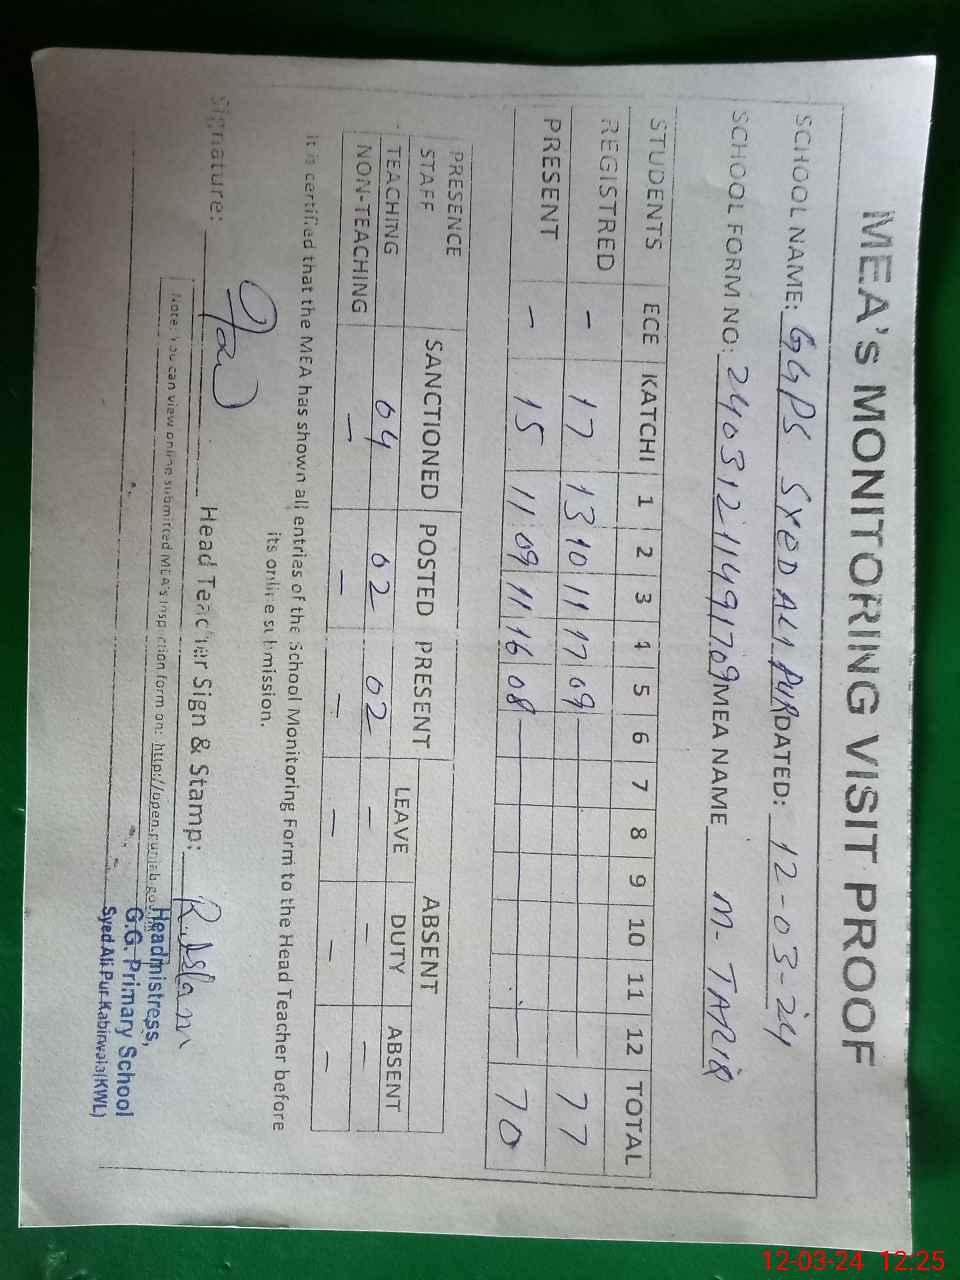 MEA's MONITORING VISIT PROOF
SCHOOL NAME: GGPS SYED ALI PUR DATED: 12-03-24
SCHOOL FORM NO: 24031211491709 MEA NAME M-TARIQ
STUDENTS ECE KATCHI 1 2 3 4 5 6 7 8 9 10 11 12 TOTAL
REGISTRED - 17 13 10 11 17 09 77
PRESENT - 15 11 09 11 16 08 70
PRESENCE STAFF SANCTIONED POSTED PRESENT ABSENT
LEAVE DUTY ABSENT
TEACHING 04 02 02 - - -
NON-TEACHING - - - - - -
It is certified that the MEA has shown all entries of the School Monitoring Form to the Head Teacher before
its online submission.
Signature: Head Teacher Sign & Stamp: R.Islam
Note: You can view online submitted MEA's inspection form on: http://open.punjab.gov.
Headmistress,
G.G. Primary School
Syed Ali Pur Kabirwala (KWL)
12-03-24 12:25